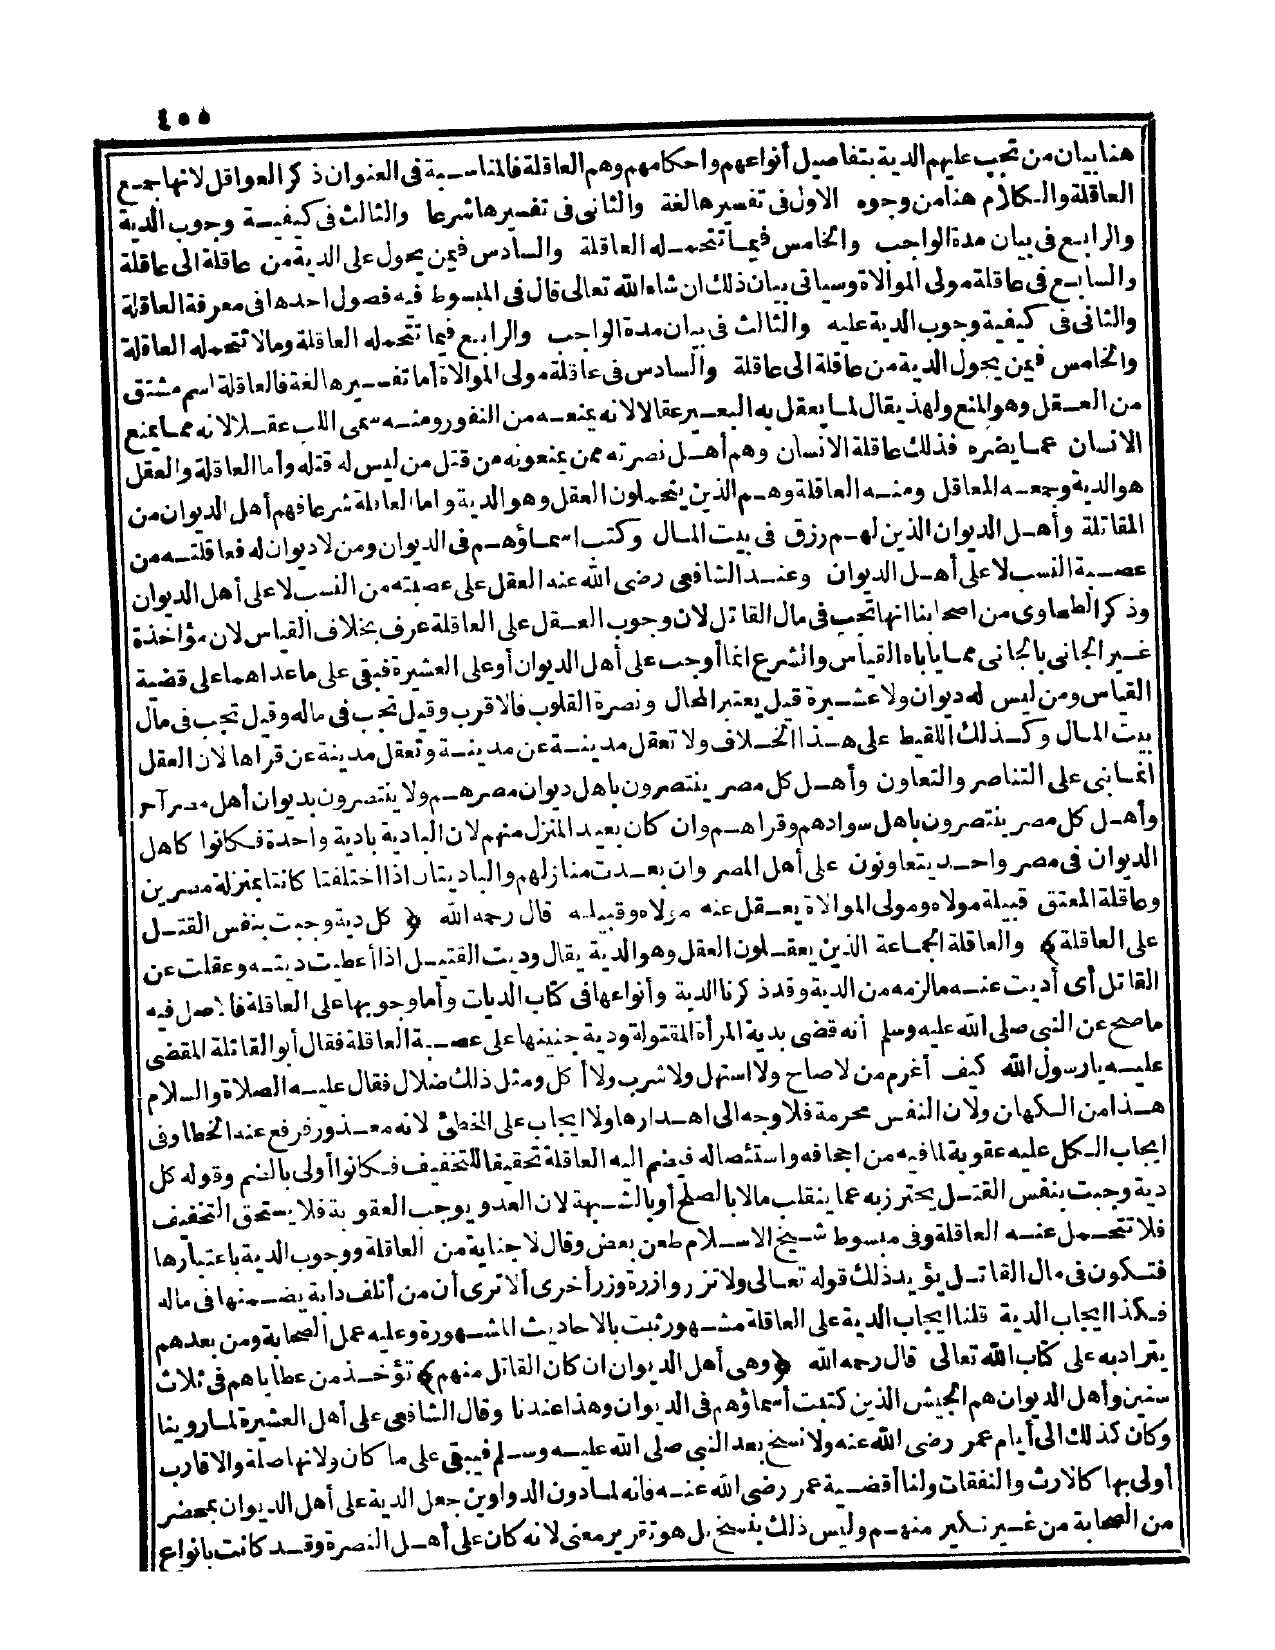 ٤٠٥
هنا بيان من تجب عليهم الدية بتفاصيل أنواعهم واحكامهم وهم العاقلة فالمناسبة فى العنوان ذكر العواقل لانها جمع
العاقلة والكلام هنا من وجوه الاول فى تفسيرها لغة والثانى فى تفسيرها شرعا والثالث فى كيفية وجوب الدية
والرابع فى بيان مدة الواجب والخامس فيما تتحمله العاقلة والسادس فيمن يحول على الدية من عاقلة الى عاقلة
والسابع فى عاقلة مولى الموالاة وسيأتى بيان ذلك ان شاء الله تعالى قال فى المبسوط فيه فصول احدها فى معرفة العاقلة
والثانى فى كيفية وجوب الدية عليه والثالث فى بيان مدة الواجب والرابع فيما تتحمله العاقلة ومالا تتحمله العاقلة
والخامس فيمن يحول الدية من عاقلة الى عاقلة والسادس فى عاقلة مولى الموالاة أما تفسيرها لغة فالعاقلة اسم مشتق
من العقل وهو المنع ولهذ يقال لما يعقل به البعير عقالا لانه يمنعه من النفور ومنه سمى اللب عقلا لانه مما يمنع
الانسان عما يضره فذلك عاقلة الانسان وهم أهل نصرته ممن يمنعونه من قتل من ليس له قتله وأما العاقلة والعقل
هو الدية وجمعه المعاقل ومنه العاقلة وهم الذين يتحملون العقل وهو الدية واما العاقلة شرعا فهم أهل الديوان من
المقاتلة وأهل الديوان الذين لهم رزق فى بيت المال وكتب اسماؤهم فى الديوان ومن لا ديوان له فعاقلته من
عصبة النسب لا على أهل الديوان وعند الشافعى رضى الله عنه العقل على عصبته من النسب لا على أهل الديوان
وذكر الطحاوى من اصحابنا انها تجب فى مال القاتل لان وجوب العقل على العاقلة عرف بخلاف القياس لان مؤاخذة
غير الجانى بالجانى مما ياباه القياس والشرع انما أوجب على أهل الديوان أو على العشيرة فبقى على ما عداهما على قضية
القياس ومن ليس له ديوان ولا عشيرة قيل يعتبر المحال ونصرة القلوب فالاقرب وقيل تجب فى ماله وقيل تجب فى مال
بيت المال وكذلك اللقيط على هذا الخلاف ولا تعقل مدينة عن مدينة وتعقل مدينة عن قراها لان العقل
انما بنى على التناصر والتعاون وأهل كل مصر ينتصرون باهل ديوان مصرهم ولا ينتصرون بديوان أهل مصر آخر
وأهل كل مصر ينتصرون باهل سوادهم وقراهم وان كان بعيد المنزل منهم لان البادية بادية واحدة فكانوا كاهل
الديوان فى مصر واحد يتعاونون على أهل المصر وان بعدت منازلهم والباديتان اذا اختلفتا كانتا بمنزلة مسرين
وعاقلة المعتق قبيلة مولاه ومولى الموالاة يعقل عنه مولاه وقبيله قال رحمه الله ﴿ كل دية وجبت بنفس القتل
على العاقلة ﴾ والعاقلة الجماعة الذين يعقلون العقل وهو الدية يقال وديت القتيل اذا أعطيت ديته وعقلت عن
القاتل أى أديت عنه مالزمه من الدية وقد ذكرنا الدية وأنواعها فى كتاب الديات وأما وجوبها على العاقلة فالاصل فيه
ما صح عن النبى صلى الله عليه وسلم أنه قضى بدية المرأة المقتولة ودية جنينها على عصبة العاقلة فقال أبو القاتلة المقضى
عليه يا رسول الله كيف أغرم من لا صاح ولا استهل ولا شرب ولا أكل ومثل ذلك ضلال فقال عليه الصلاة والسلام
هذا من الكهان ولان النفس محرمة فلا وجه الى اهدارها ولا ايجاب على المخطئ لانه معذور فرفع عنه الخطا وفى
ايجاب الكل عليه عقوبة لما فيه من اجحافه واستئصاله فيضم اليه العاقلة تحقيقا للتخفيف فكانوا أولى بالضم وقوله كل
دية وجبت بنفس القتل يحترز به عما ينقلب مالا بالصلح أو بالشبهة لان العدو يوجب العقوبة فلا يستحق التخفيف
فلا تتحمل عنه العاقلة وفى مبسوط شيخ الاسلام طعن بعض وقال لا جناية من العاقلة ووجوب الدية باعتبارها
فتكون فى مال القاتل يؤيد ذلك قوله تعالى ولا تزر وازرة وزر أخرى ألا ترى أن من أتلف دابة يضمنها فى ماله
فكذا ايجاب الدية قلنا ايجاب الدية على العاقلة مشهور ثبت بالاحاديث المشهورة وعليه عمل الصحابة ومن بعدهم
يتراد به على كتاب الله تعالى قال رحمه الله ﴿ وهى أهل الديوان ان كان القاتل منهم ﴾ تؤخذ من عطاياهم فى ثلاث
سنين وأهل الديوان هم الجيش الذين كتبت أسماؤهم فى الديوان وهذا عندنا وقال الشافعى على أهل العشيرة لما روينا
وكان كذلك الى أيام عمر رضى الله عنه ولا نسخ بعد النبى صلى الله عليه وسلم فيبقى على ما كان ولانها صلة والاقارب
أولى بها كالارث والنفقات ولنا أقضية عمر رضى الله عنه فانه لما دون الدواوين جعل الدية على أهل الديوان بمحضر
من الصحابة من غير نكير منهم وليس ذلك بنسخ بل هو تقرير معنى لانه كان على أهل النصرة وقد كانت بانواع